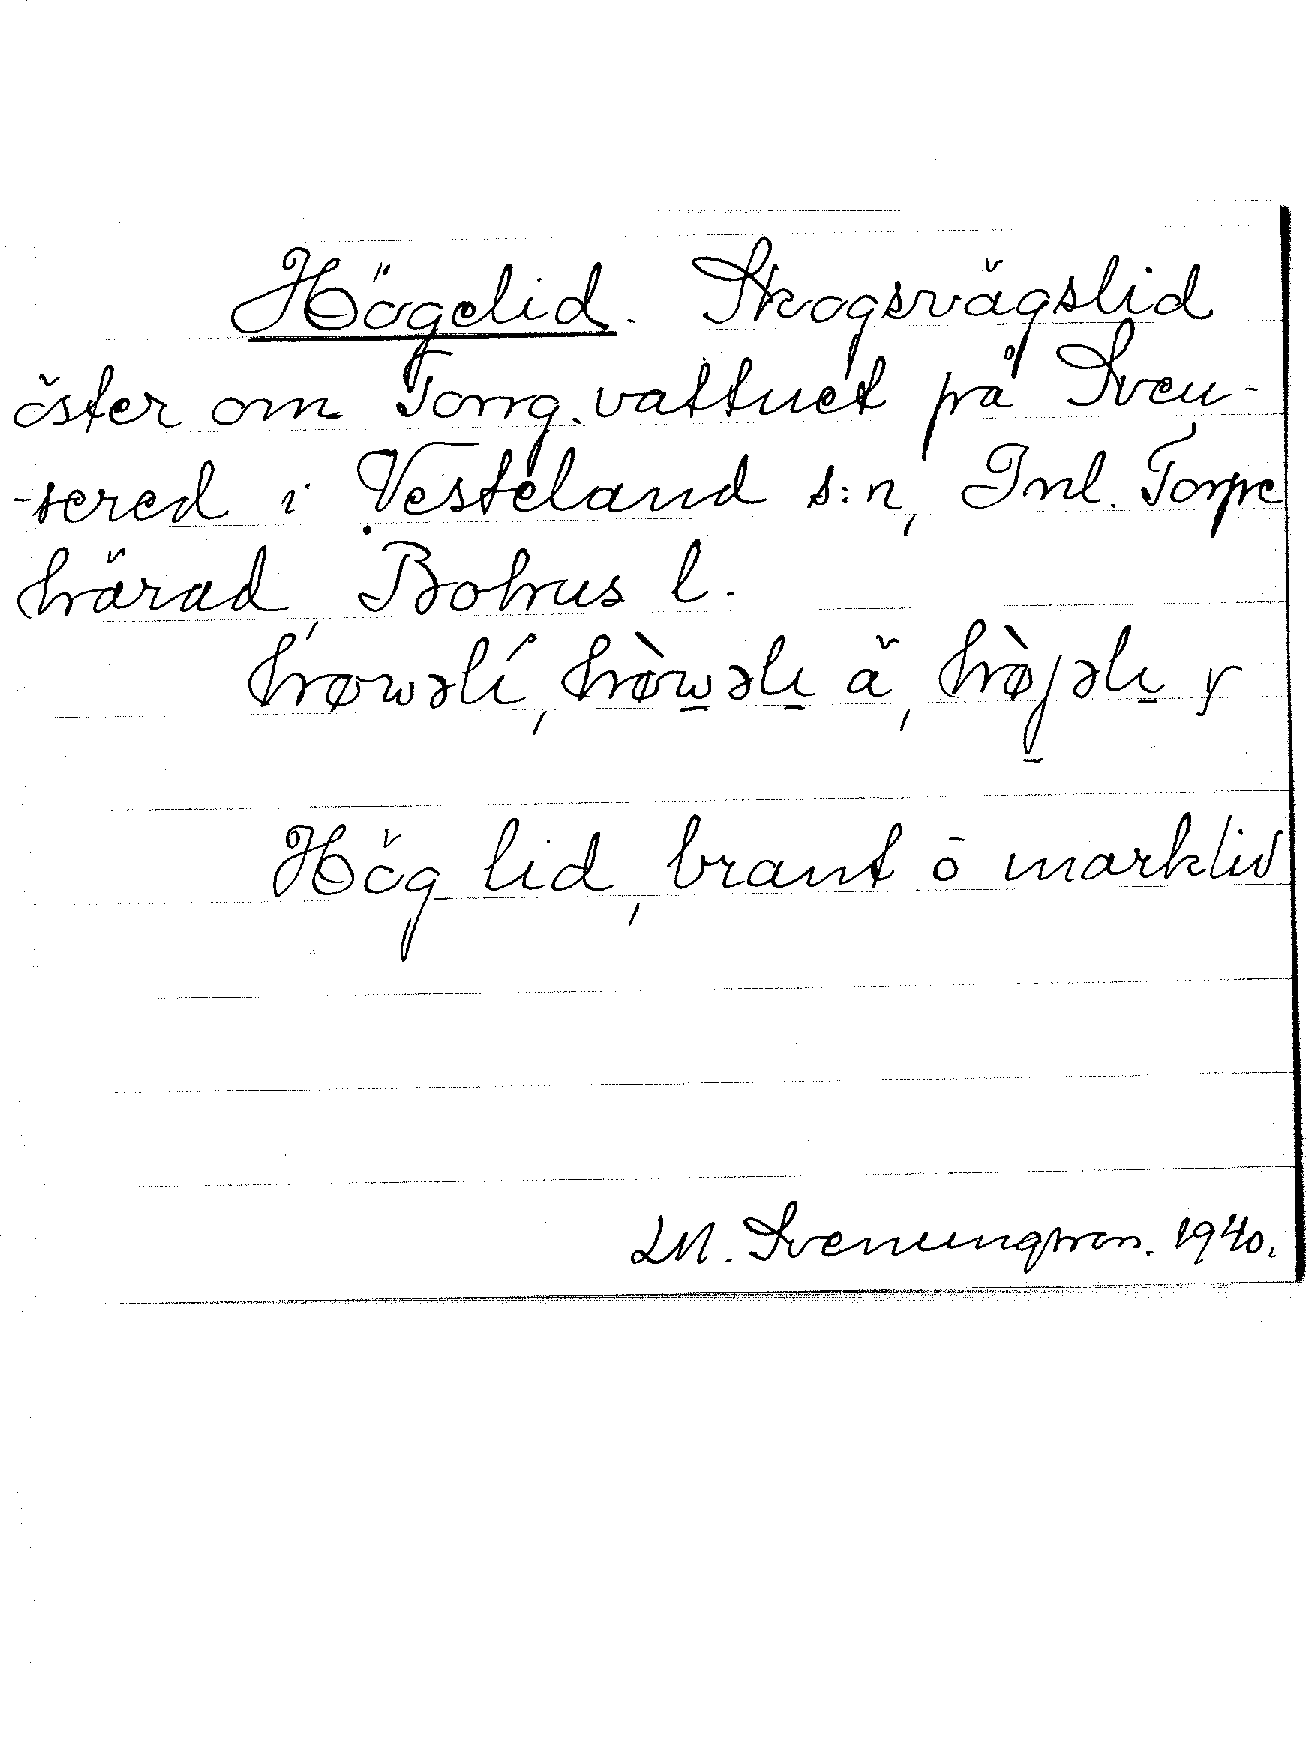 Högelid. Skogsvägslid
öster om Torrg. vattnet på Sven-
-sered i Vesteland s:n, Inl. Torpe
härad, Bohus l.
høwəlí, hòwəlι ä, hòjəlι y
Hög lid, brant ō marklid
M. Svenungsson. 1940.